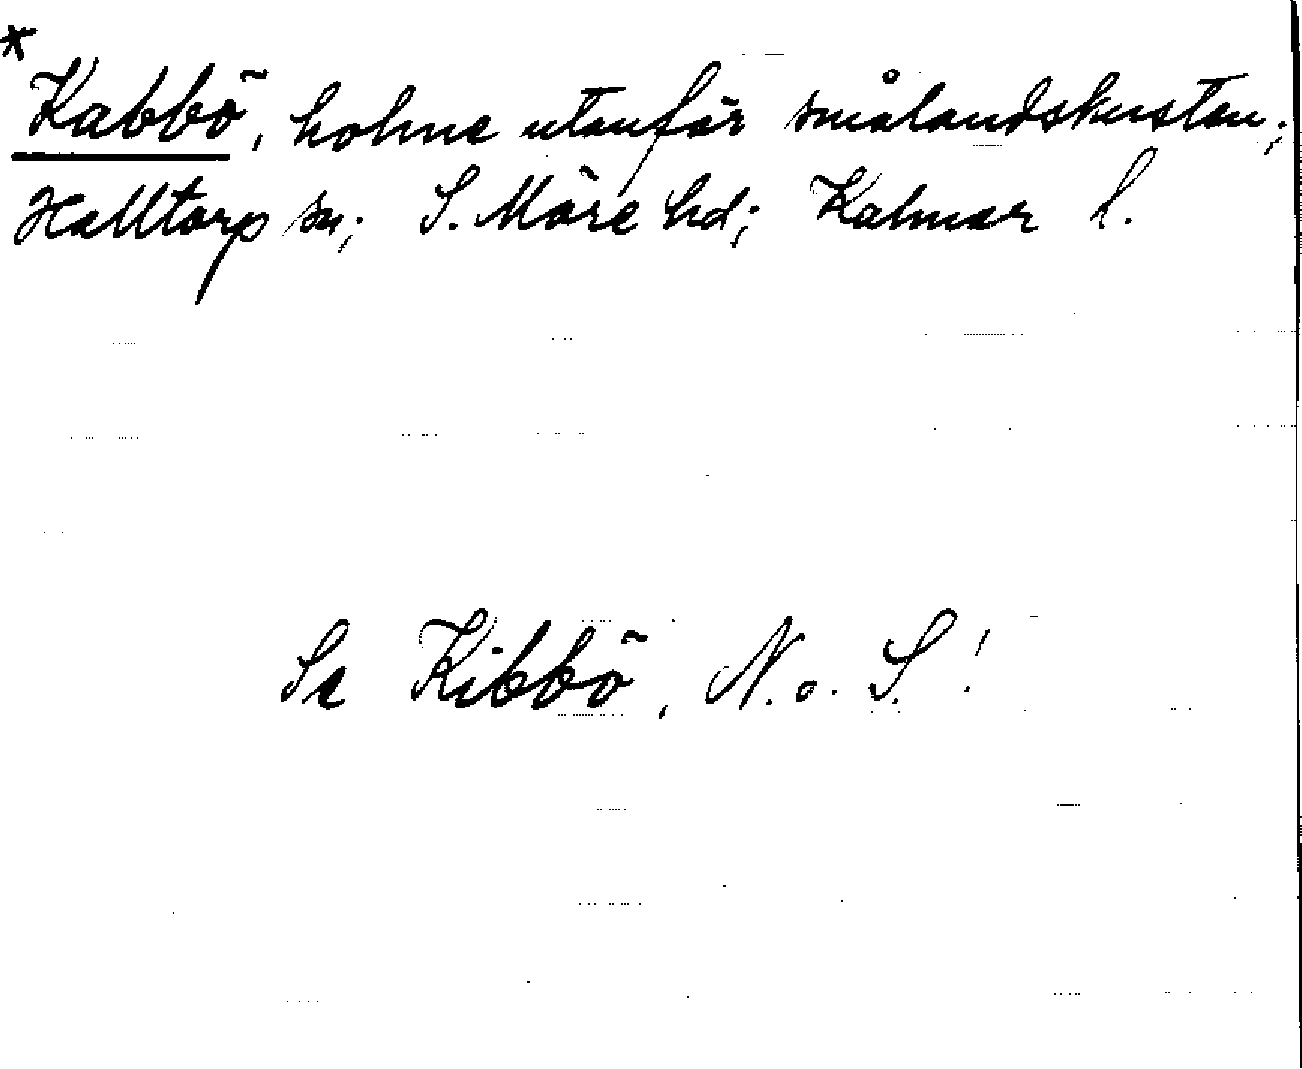 * Kabbö, holme utanför smålandskusten;
Halltorp sn; S. Möre hd; Kalmar l.
Se Kibbö, N. o. S.!